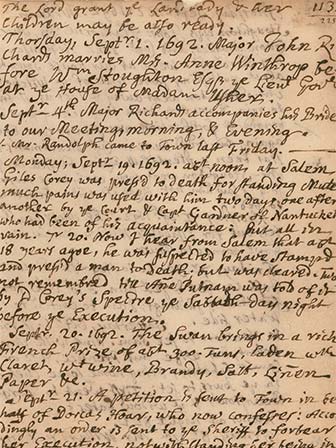 The Lord grant ye Lan. Lady & her 113
Children may be also ready
Thorsday, Septr. 1. 1692. Major John Ri
chards marries Mrs. Anne Winthrop be
fore Wm. Stoughton Esqr. ye Lieut Govr
at ye House of Madam Usher.
Septr 4th Major Richards accompanies his Bride
to our Meeting, morning, & Evening.
Mr. Randolph came to Town last Friday.
Monday, Septr. 19. 1692. abt noon, at Salem
Giles Corey was press'd to death for standing Mute
much pains was used with him two days, one after
another by ye Court & Capt. Gardner of Nantucket
who had been of his acquaintance: but all in
vain. 7r 20. Now I hear from Salem that abt
18 years agoe, he was suspected to have Stamp'd
and press'd a man to death, but was cleared. Twas
not remembred till Ane Putnam was told of it
by sd Corey's Spectre ye Sabbath-day night
before ye Execution.
Septr. 20. 1692. The Swan brings in a rich
French Prize of abt 300. Tuns, laden wth
Claret, wt wine, Brandy, Salt, Linen
Paper &c.
Septr 21. A petition is sent to Town in be
half of Dorcas Hoar, who now confesses: Acco
dingly an order is sent to ye Sheriff to forbear
her Execution, notwithstanding her being